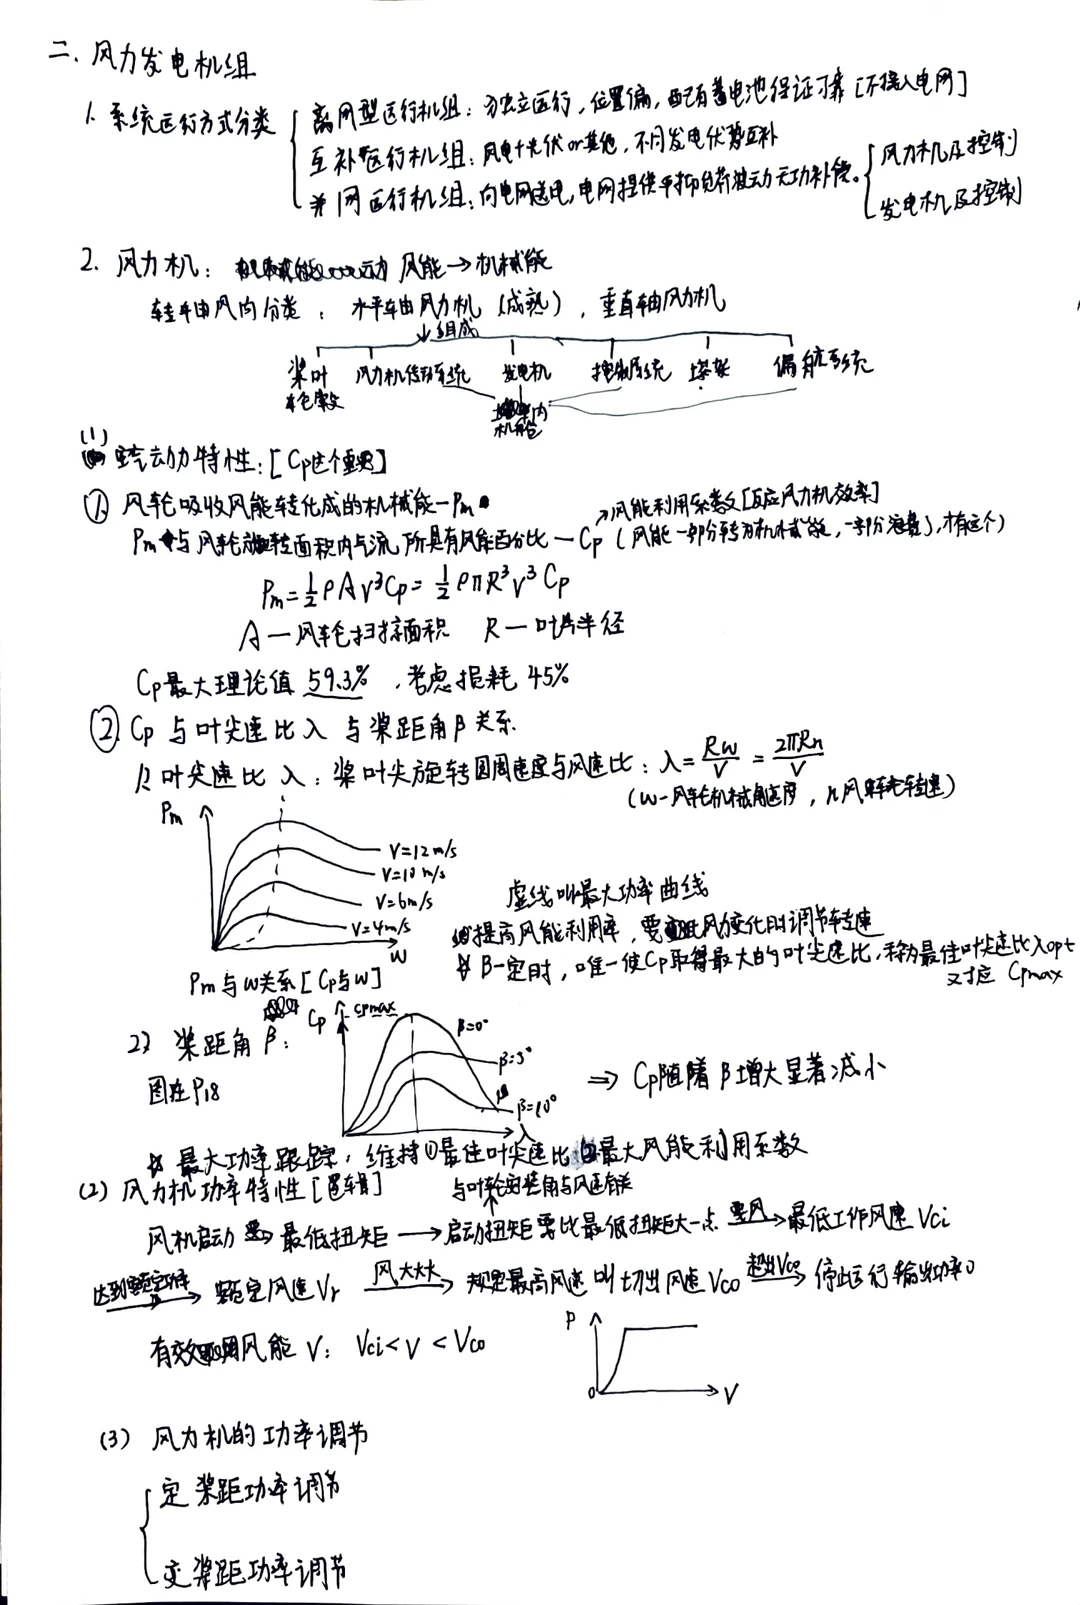 二. 风力发电机组
1. 系统运行方式分类
离网型运行机组：独立运行，位置偏，配有蓄电池保证可靠 [不接入电网]
互补运行机组：风电+光伏or其他，不同发电优势互补
并网运行机组：向电网送电，电网提供平抑负荷波动无功补偿。
风力机及控制
发电机及控制
2. 风力机： 风能→机械能
转轴风向分类： 水平轴风力机 (成熟)，垂直轴风力机
↓组成
桨叶 风力机传动系统 发电机 控制系统 塔架 偏航系统
机舱内
(1) 空气动力特性：[Cp这个重要]
① 风轮吸收风能转化成的机械能—Pm
风能利用系数 [反应风力机效率]
Pm与风轮旋转面积内气流所具有风能百分比—Cp (风能一部分转为机械能，一部分浪费)，才有这个)
Pm=½ρAv³Cp=½ρπR³v³Cp
A—风轮扫掠面积 R—叶片半径
Cp最大理论值 59.3%，考虑损耗 45%
② Cp与叶尖速比λ与桨距角β关系.
1) 叶尖速比 λ：桨叶尖旋转圆周速度与风速比：λ=Rω/V=2πRn/V
(ω-风轮机械角速度，n风轮转速)
Pm
V=12m/s
V=10m/s
V=6m/s
V=4m/s
ω
虚线叫最大功率曲线
提高风能利用率，要风变化时调节转速
β一定时，唯一使Cp取得最大的叶尖速比，称为最佳叶尖速比λopt
对应 Cpmax
Pm与ω关系 [Cp与ω]
2) 桨距角 β：
图在P18
Cp Cpmax
β=0°
β=5°
β=10°
λ
⇒ Cp随着β增大显著减小
最大功率跟踪：维持①最佳叶尖速比②最大风能利用系数
(2) 风力机功率特性
与叶轮安装角与风速有关
风机启动 → 最低扭矩 → 启动扭矩要比最低扭矩大一点 → 最低工作风速 Vci
达到额定功率 → 额定风速Vr 风大大 → 规定最高风速叫切出风速Vco 超出Vco → 停止运行输出功率0
有效利用风能 V： Vci<V<Vco
P
0
V
(3) 风力机的功率调节
定桨距功率调节
变桨距功率调节